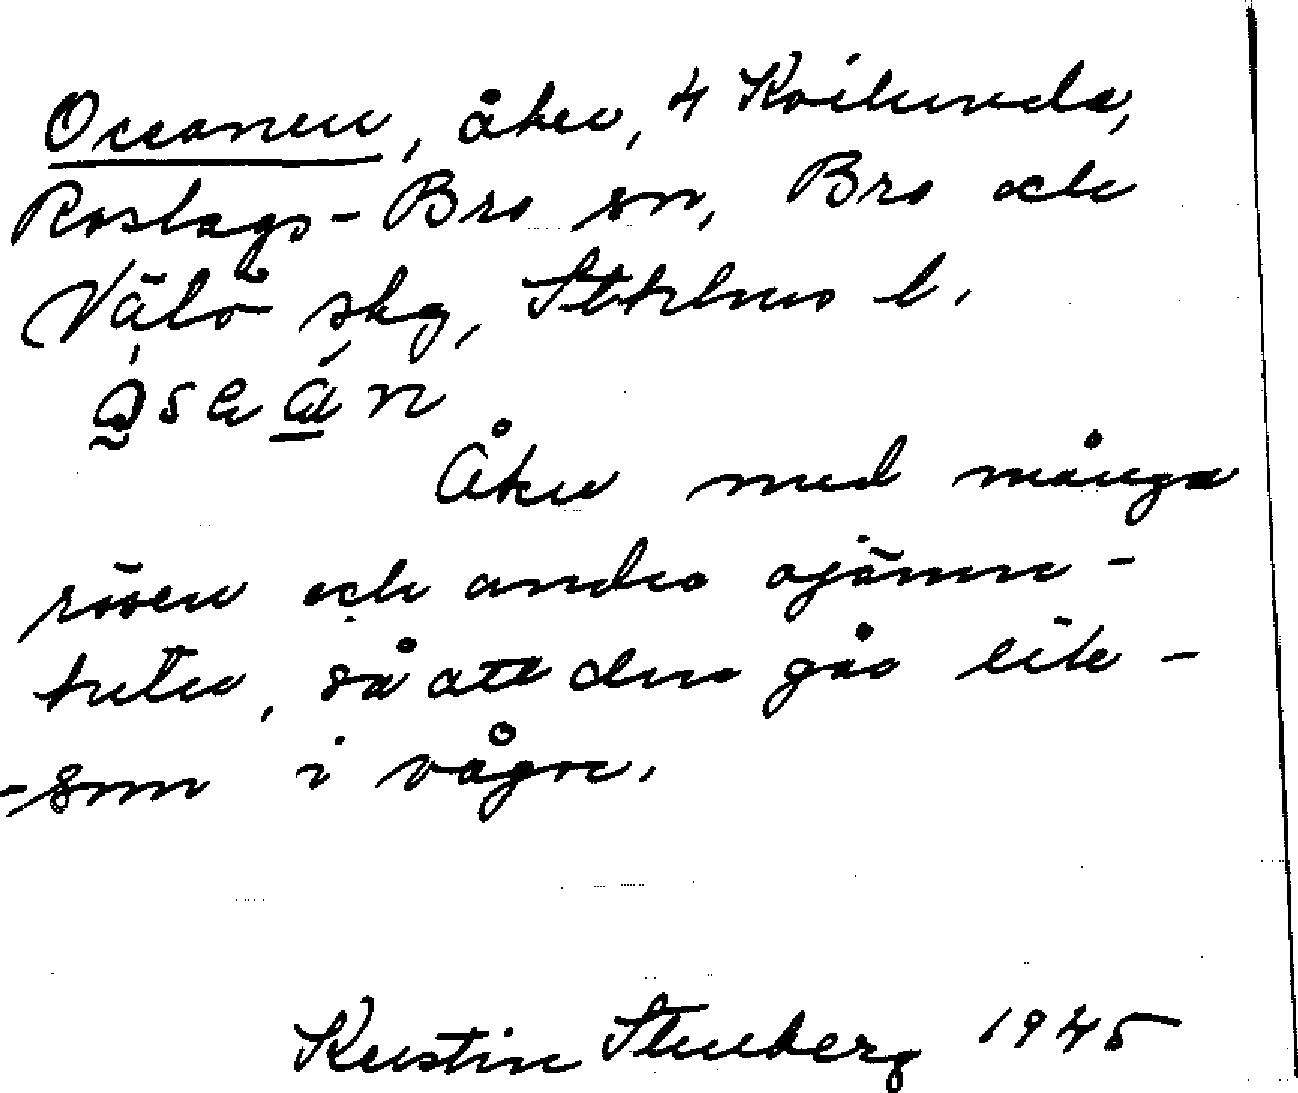 Oceanen, åker, 4 Koilunda,
Roslags-Bro sn, Bro och
Vätö skg, Stkhms l.
åseán
Åker med många
rösen och andra ojämn-
heter, så att den går lik-
-som i vågor.
Kerstin Stenberg 1945